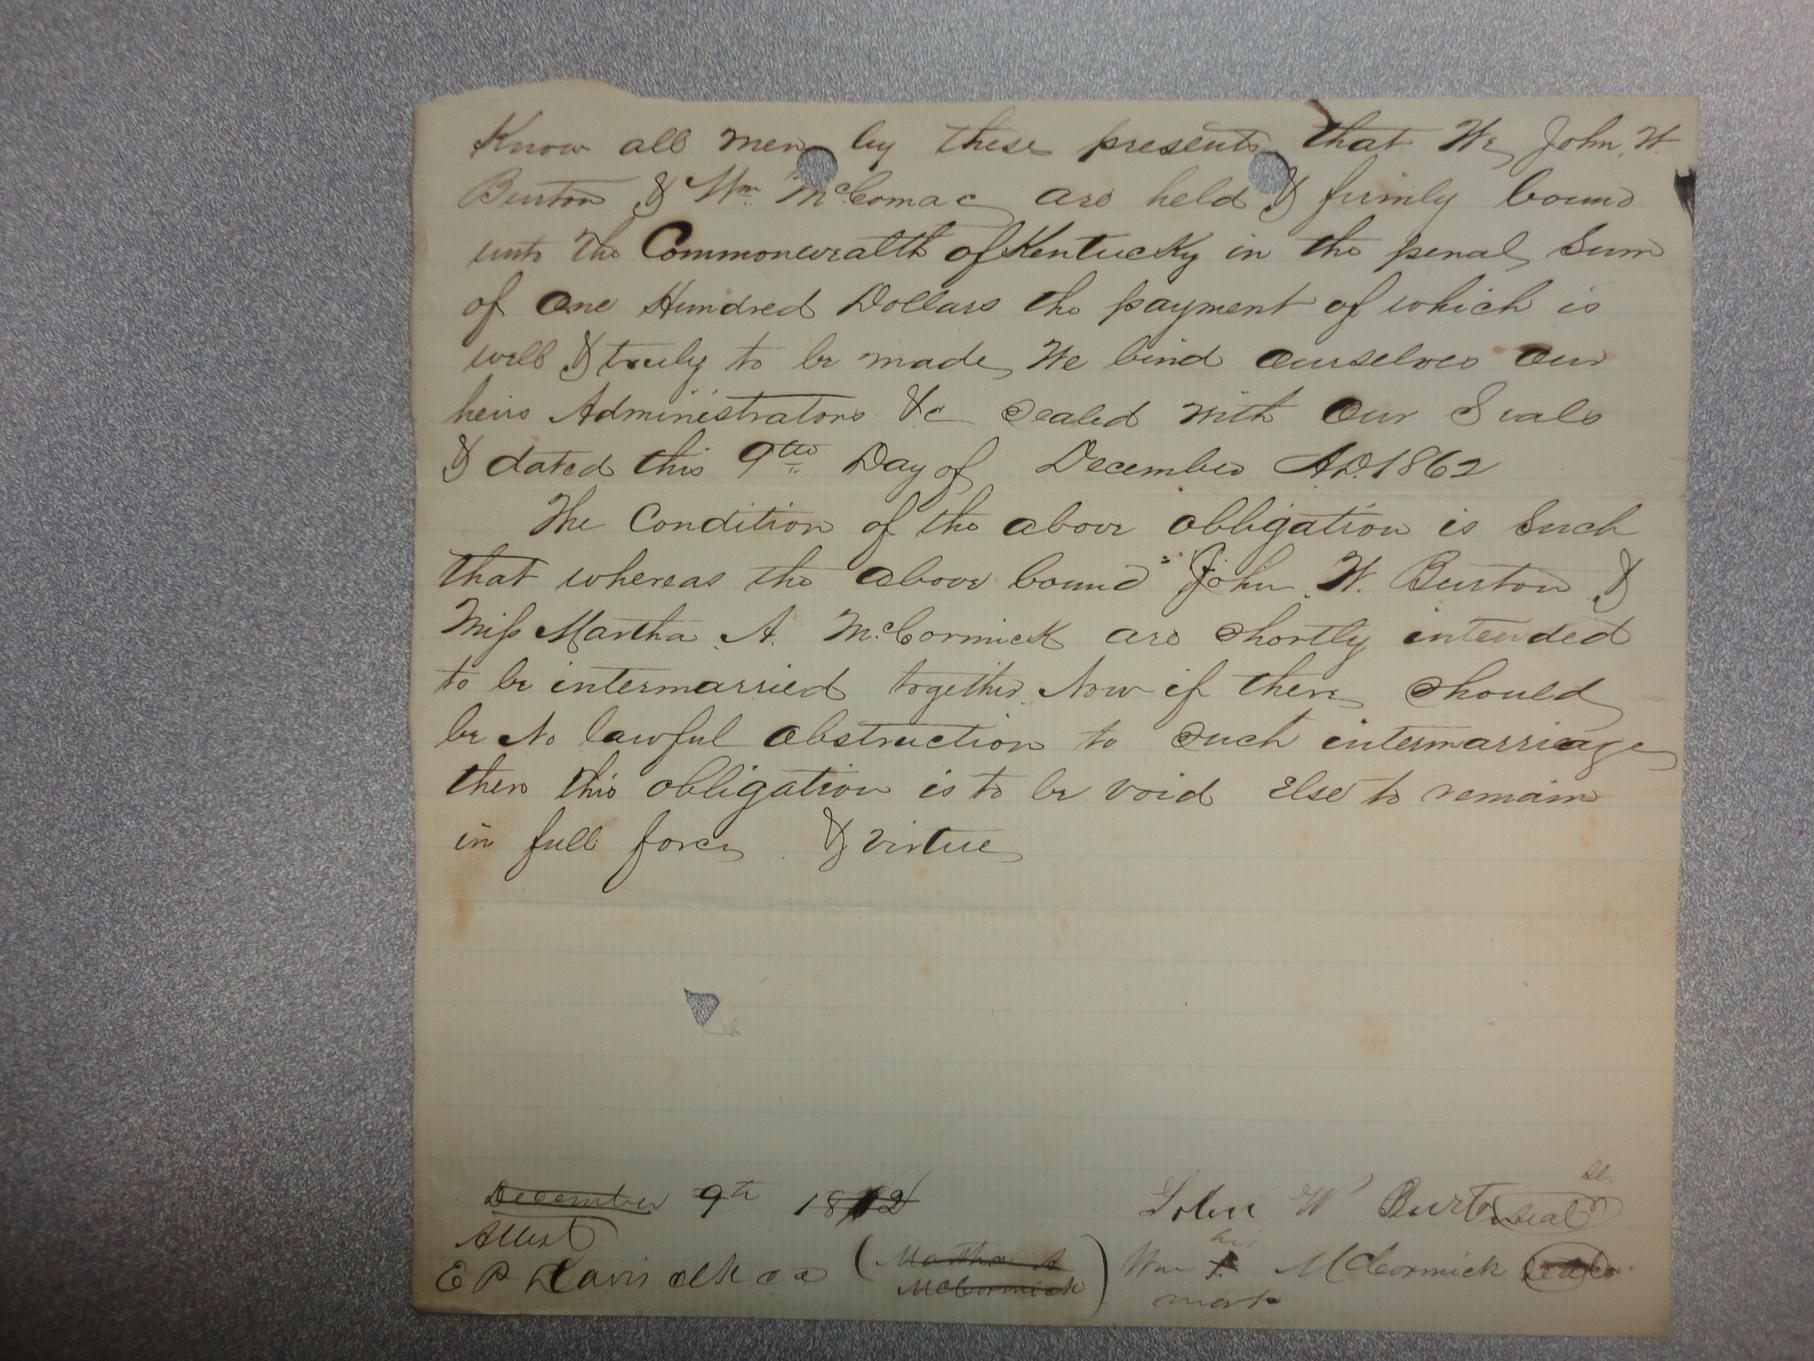 Know all men by these presents that We John. W.
Burton & Wm. McComac are held & firmly bound
unto the Commonwealth of Kentucky in the penal Sum
of One Hundred Dollars the payment of which is
well & truly to be made We bind ourselves our
heirs Administrators &c Sealed with Our Seals
& dated this 9th Day of December A.D. 1862
The Condition of the above obligation is Such
that whereas the above bound John. W. Burton &
Miss Martha. A. McCormick are Shortly intended
to be intermarried together. Now if there Should
be No lawful obstruction to Such intermarriage
then this obligation is to be void Else to remain
in full force & virtue
December 9th 1862
Attest
E P Davis clk
(Martha A
McCormick)
John W Burton Seal
his
Wm X McCormick Seal
mark